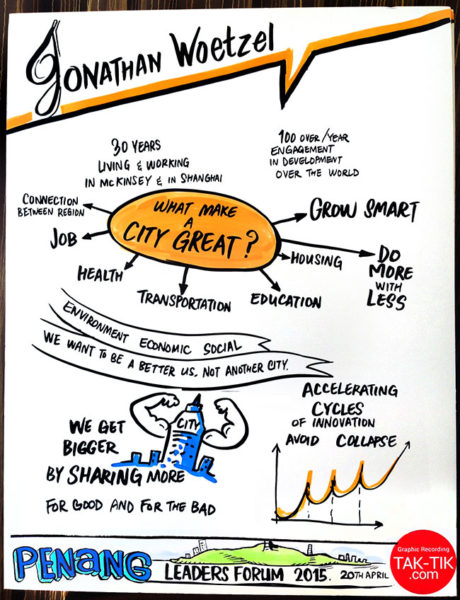 JONATHAN WOETZEL
30 YEARS
LIVING & WORKING
IN MCKINSEY & IN SHANGHAI
100 OVER/YEAR
ENGAGEMENT
IN DEVELOPMENT
OVER THE WORLD
WHAT MAKE
A
CITY GREAT?
CONNECTION
BETWEEN REGION
JOB
HEALTH
TRANSPORTATION
EDUCATION
HOUSING
GROW SMART
DO
MORE
WITH
LESS
ENVIRONMENT ECONOMIC SOCIAL
WE WANT TO BE A BETTER US. NOT ANOTHER CITY.
CITY
WE GET
BIGGER
BY SHARING MORE
FOR GOOD AND FOR THE BAD
ACCELERATING
CYCLES
OF INNOVATION
AVOID COLLAPSE
PENANG
LEADERS FORUM 2015. 20TH APRIL
Graphic Recording
TAK-TIK
.com